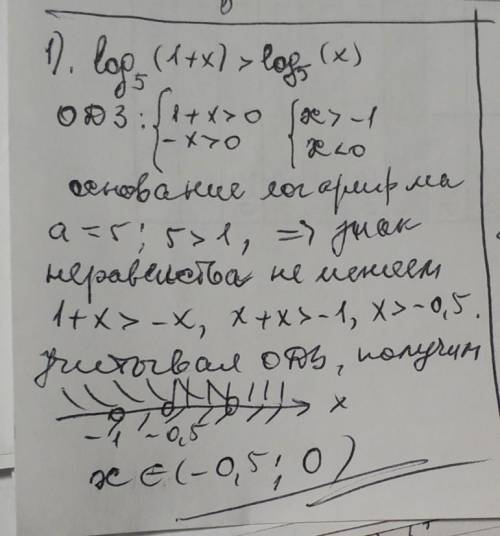 1). log₅(1+x) > log₅(x)
ОДЗ: { 1+x>0 { x>-1
-x>0 x<0
основание логарифма
a=5; 5>1, => знак
неравенства не меняем
1+x>-x, x+x>-1, x>-0,5.
учитывая ОДЗ, получим
-1 -0,5 x
x∈(-0,5; 0)